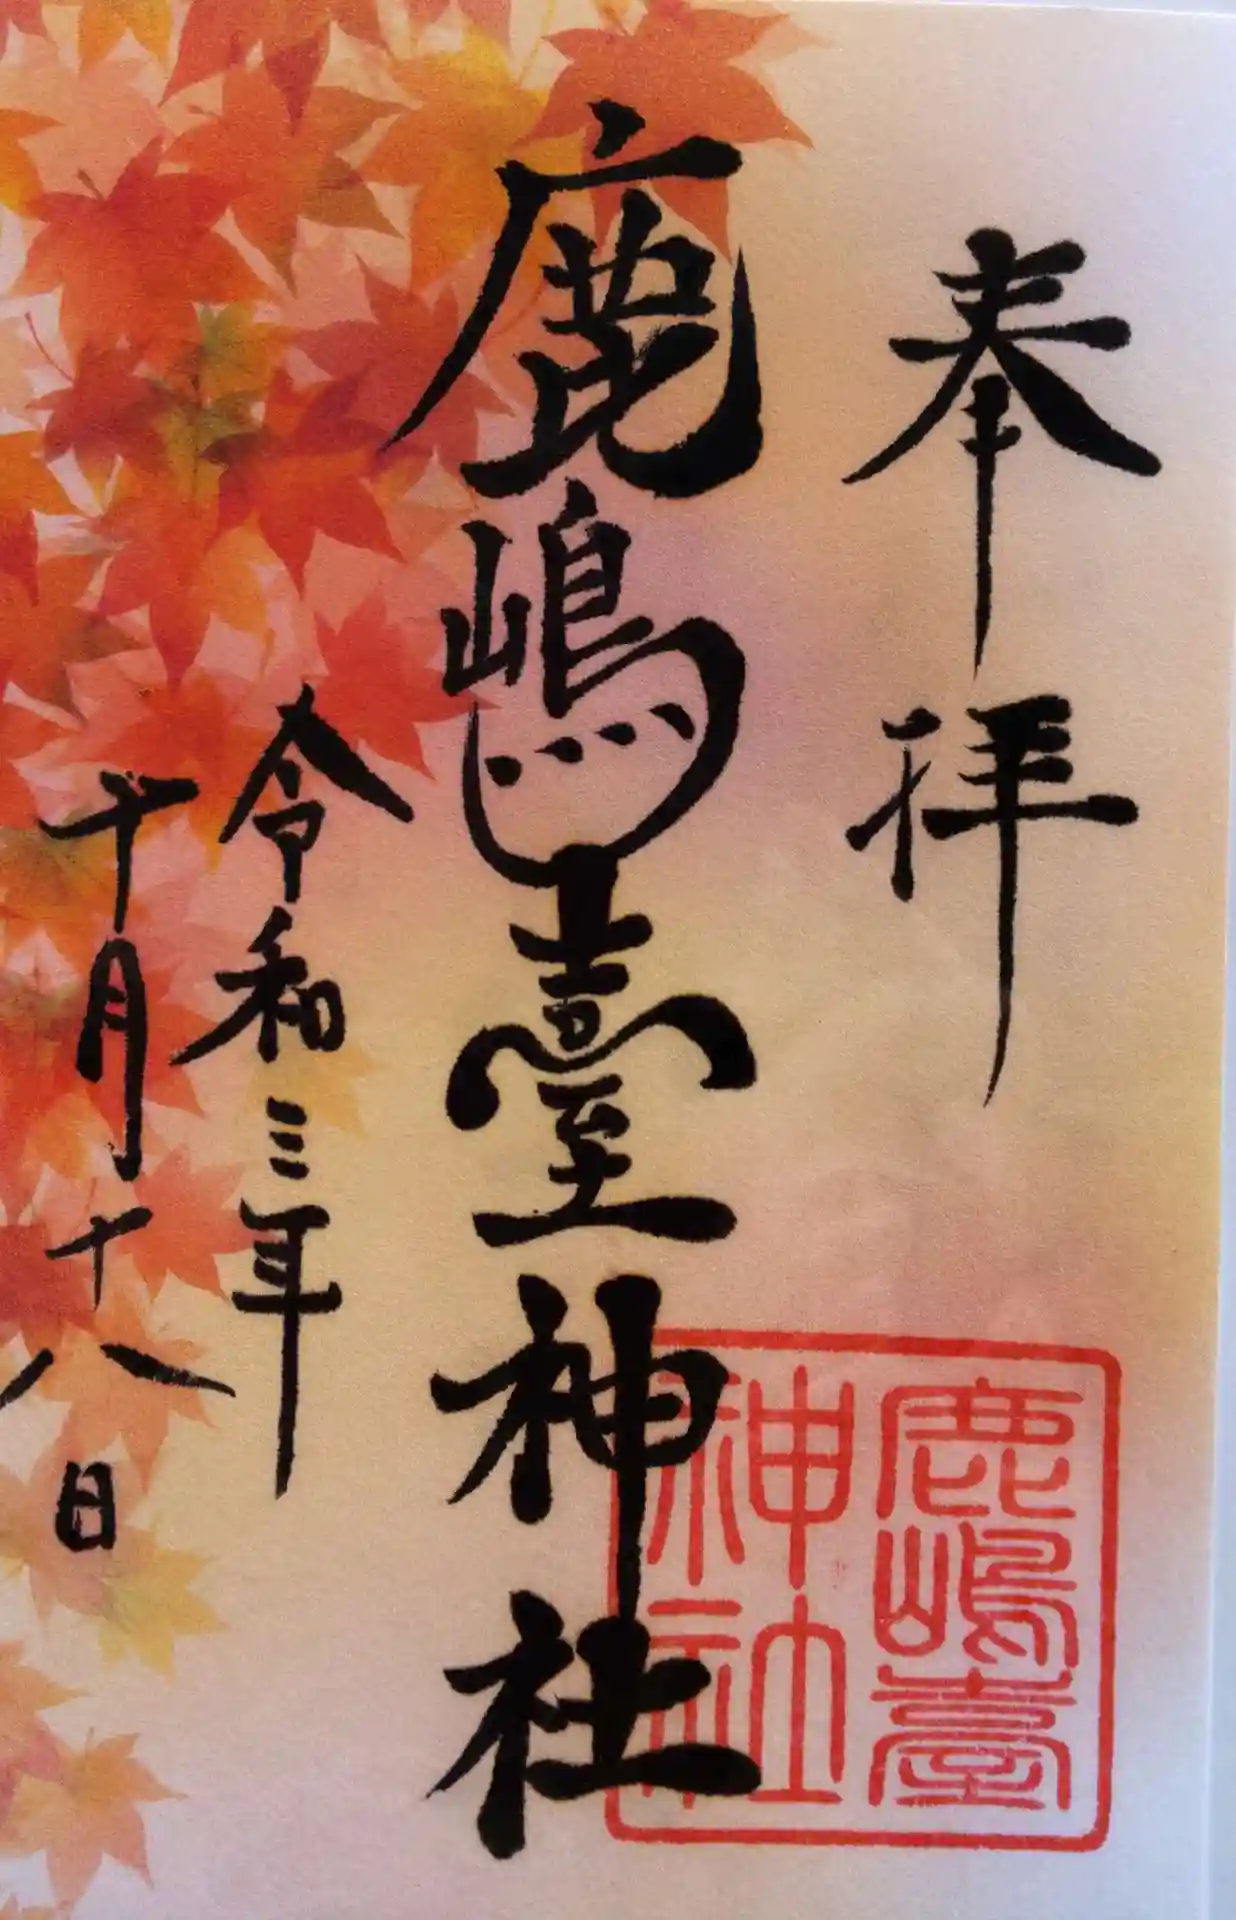 奉拝
鹿嶋臺神社
鹿嶋臺
神社
令和三年
十月十八日